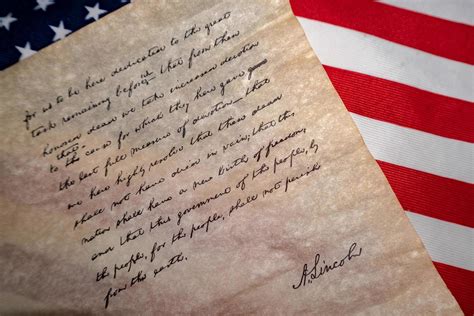 for us to be here dedicated to the great
task remaining before us that from these
honored dead we take increased devotion
to that the cause for which they here gave
the last full measure of devotion — that
we here highly resolve that these dead
shall not have died in vain; that this
nation shall have a new birth of freedom,
and that this government of the people, by
the people, for the people, shall not perish
from the earth.
A. Lincoln